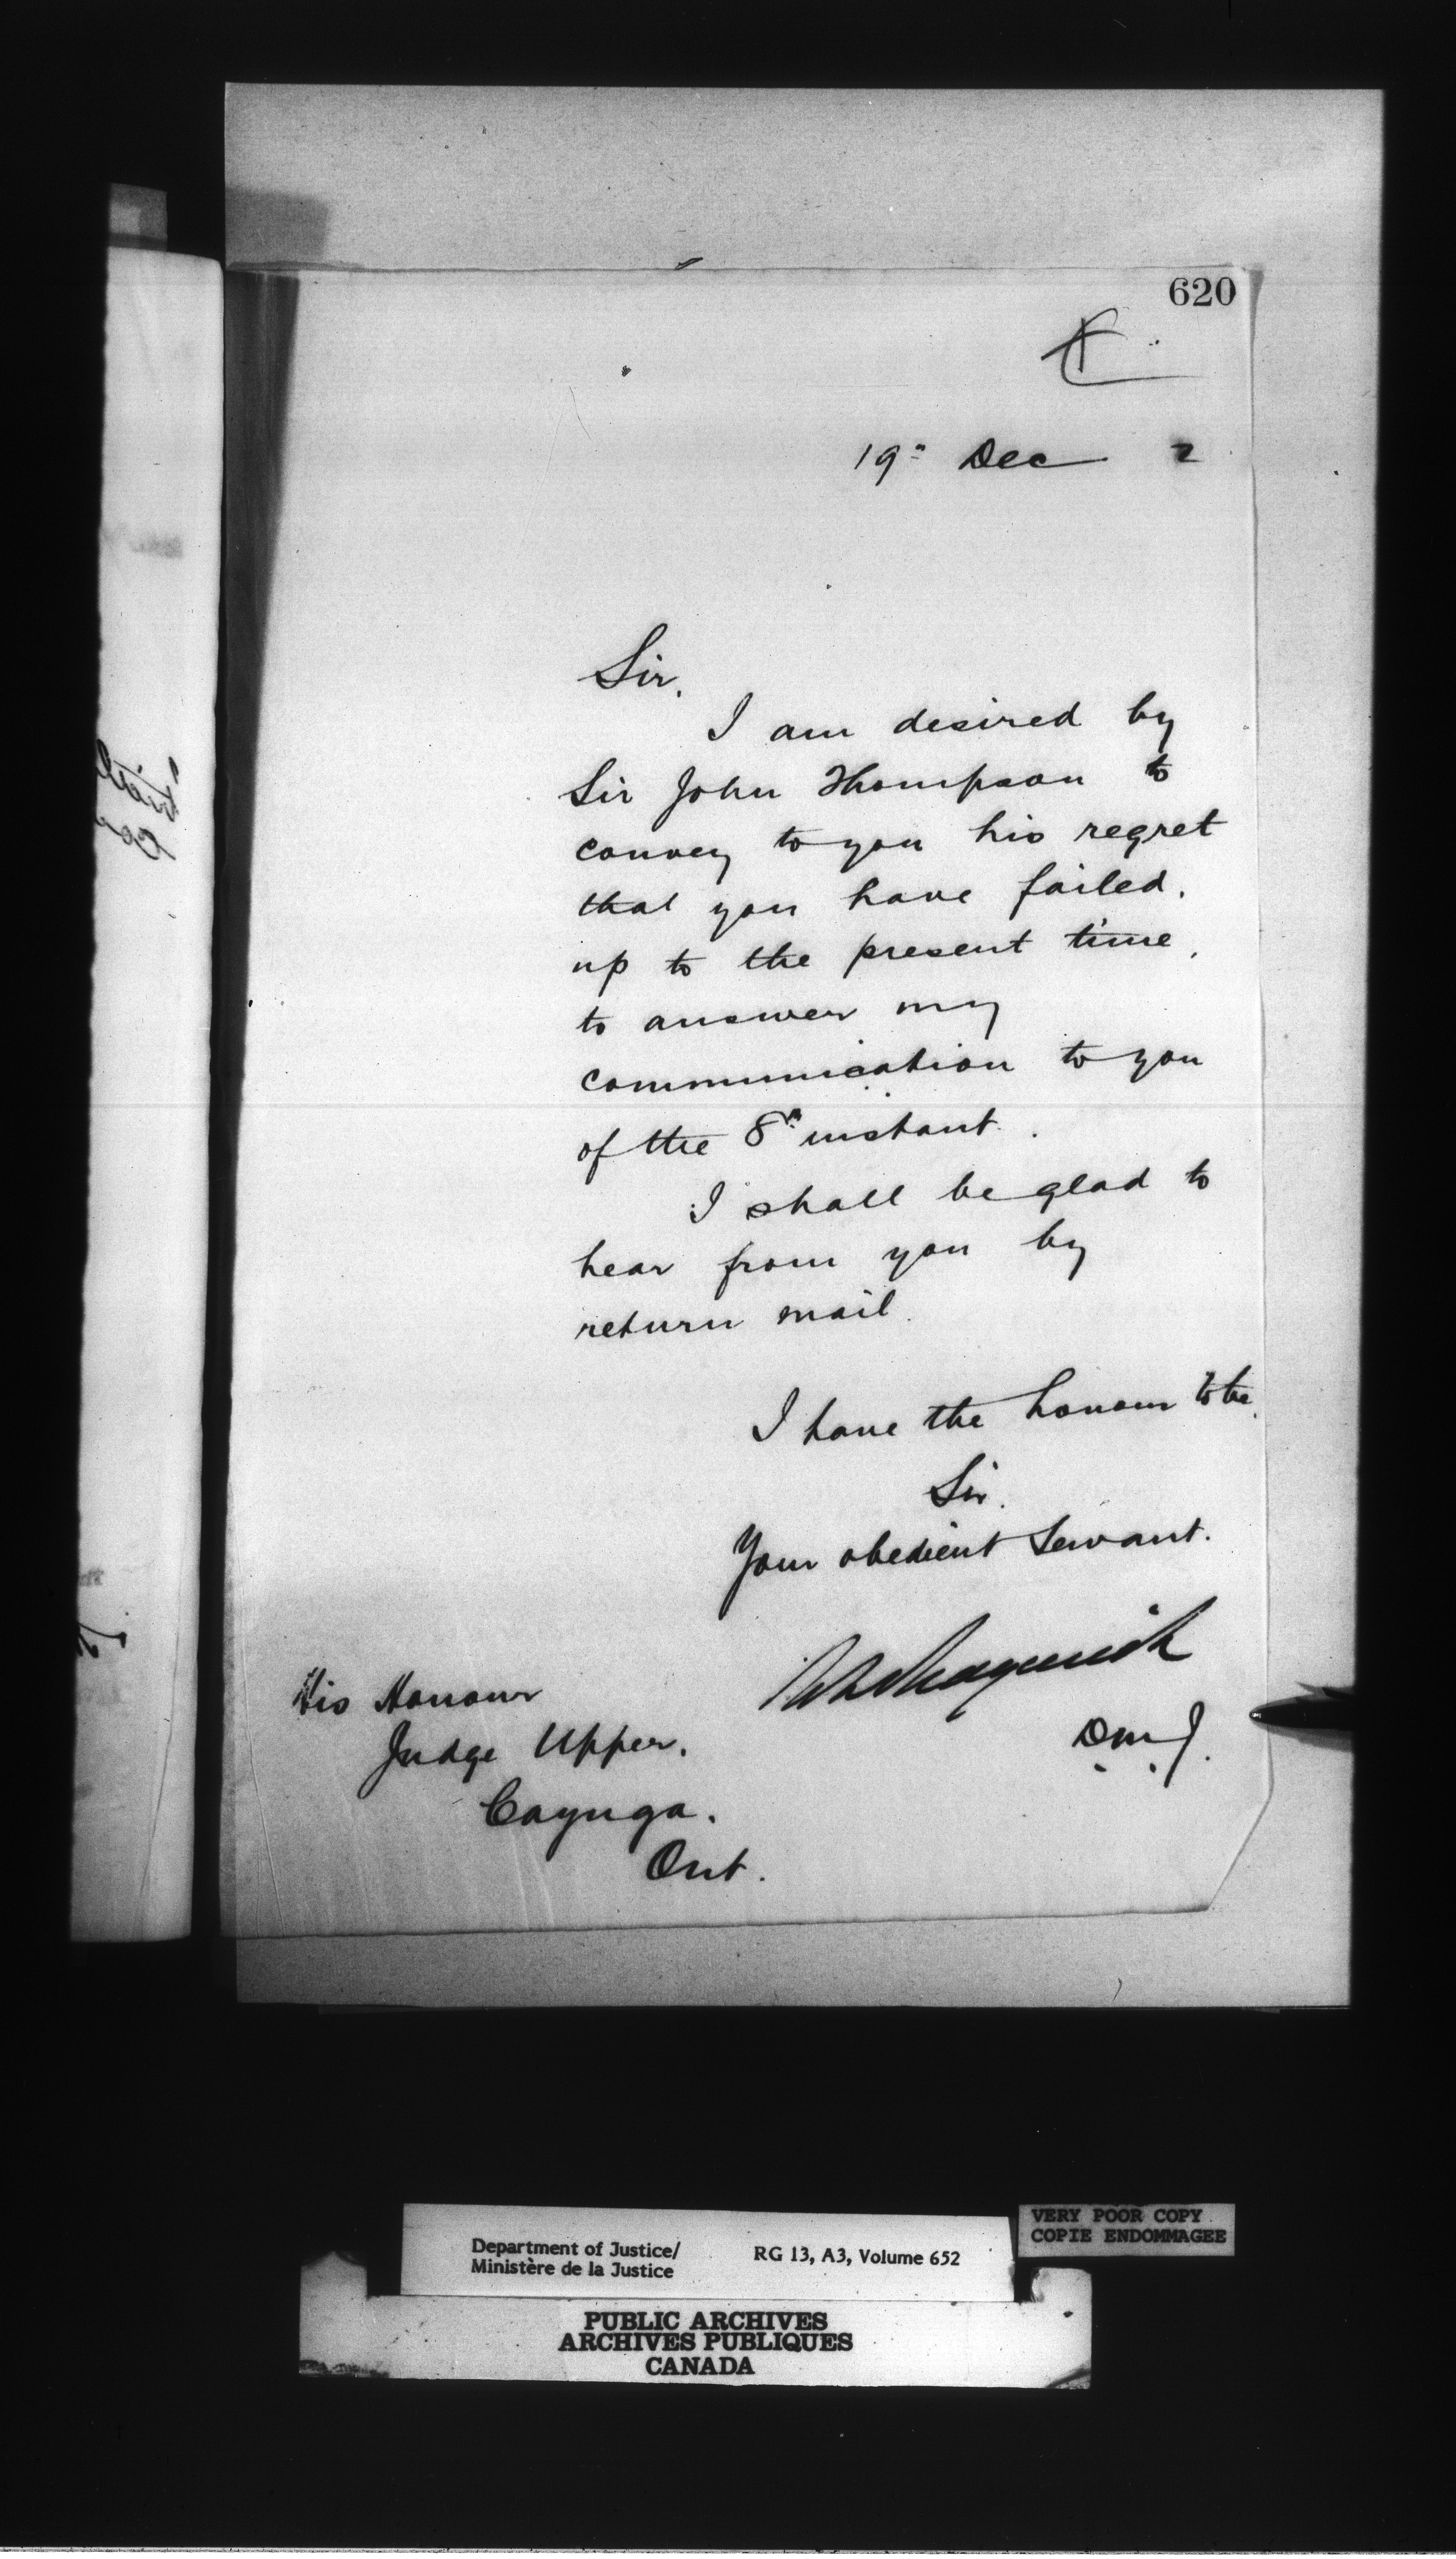 620
19th Dec 2
Sir,
I am desired by
Sir John Thompson to
convey to you his regret
that you have failed,
up to the present time,
to answer my
communication to you
of the 8th instant.
I shall be glad to
hear from you by
return mail.
I have the honour to be,
Sir,
Your obedient Servant.
D.M.J.
His Honour
Judge Upper,
Cayuga.
Ont.
VERY POOR COPY
COPIE ENDOMMAGEE
Department of Justice/
Ministère de la Justice
RG 13, A3, Volume 652
PUBLIC ARCHIVES
ARCHIVES PUBLIQUES
CANADA